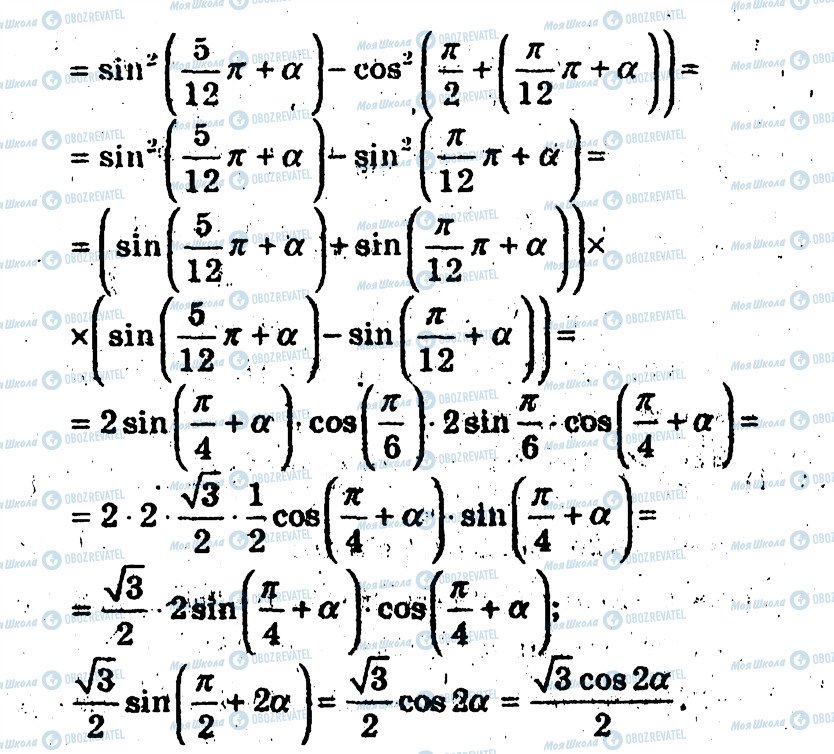 = sin²(5/12 π + α) − cos²(π/2 + (π/12 π + α)) =
= sin²(5/12 π + α) − sin²(π/12 π + α) =
= (sin(5/12 π + α) + sin(π/12 π + α)) ×
× (sin(5/12 π + α) − sin(π/12 + α)) =
= 2 sin(π/4 + α) · cos(π/6) · 2 sin π/6 · cos(π/4 + α) =
= 2 · 2 · √3/2 · 1/2 cos(π/4 + α) · sin(π/4 + α) =
= √3/2 · 2 sin(π/4 + α) · cos(π/4 + α);
√3/2 sin(π/2 + 2α) = √3/2 cos 2α = √3 cos 2α/2.
Моя Школа OBOZREVATEL